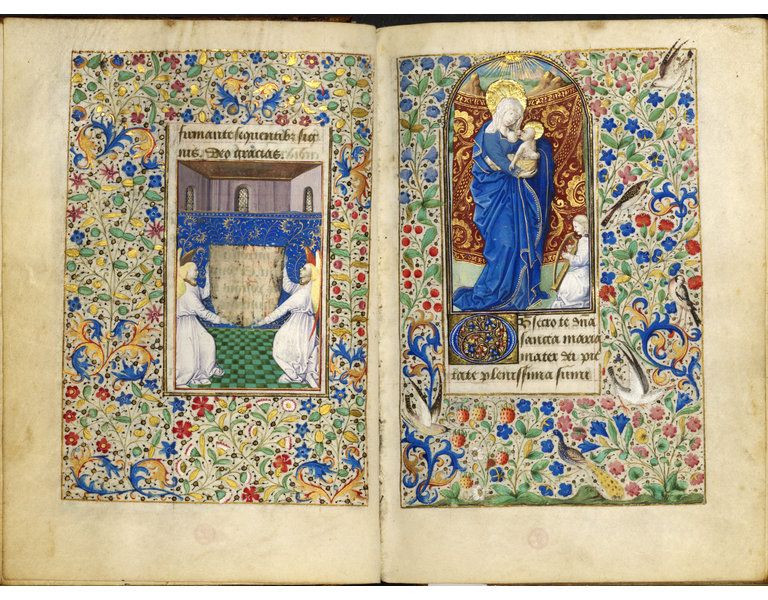 firmante sequentibꝫ sig
nis. Deo gracias.
Obsecro te dña
sancta maria
mater dei pie
tate plenissima sum̄i